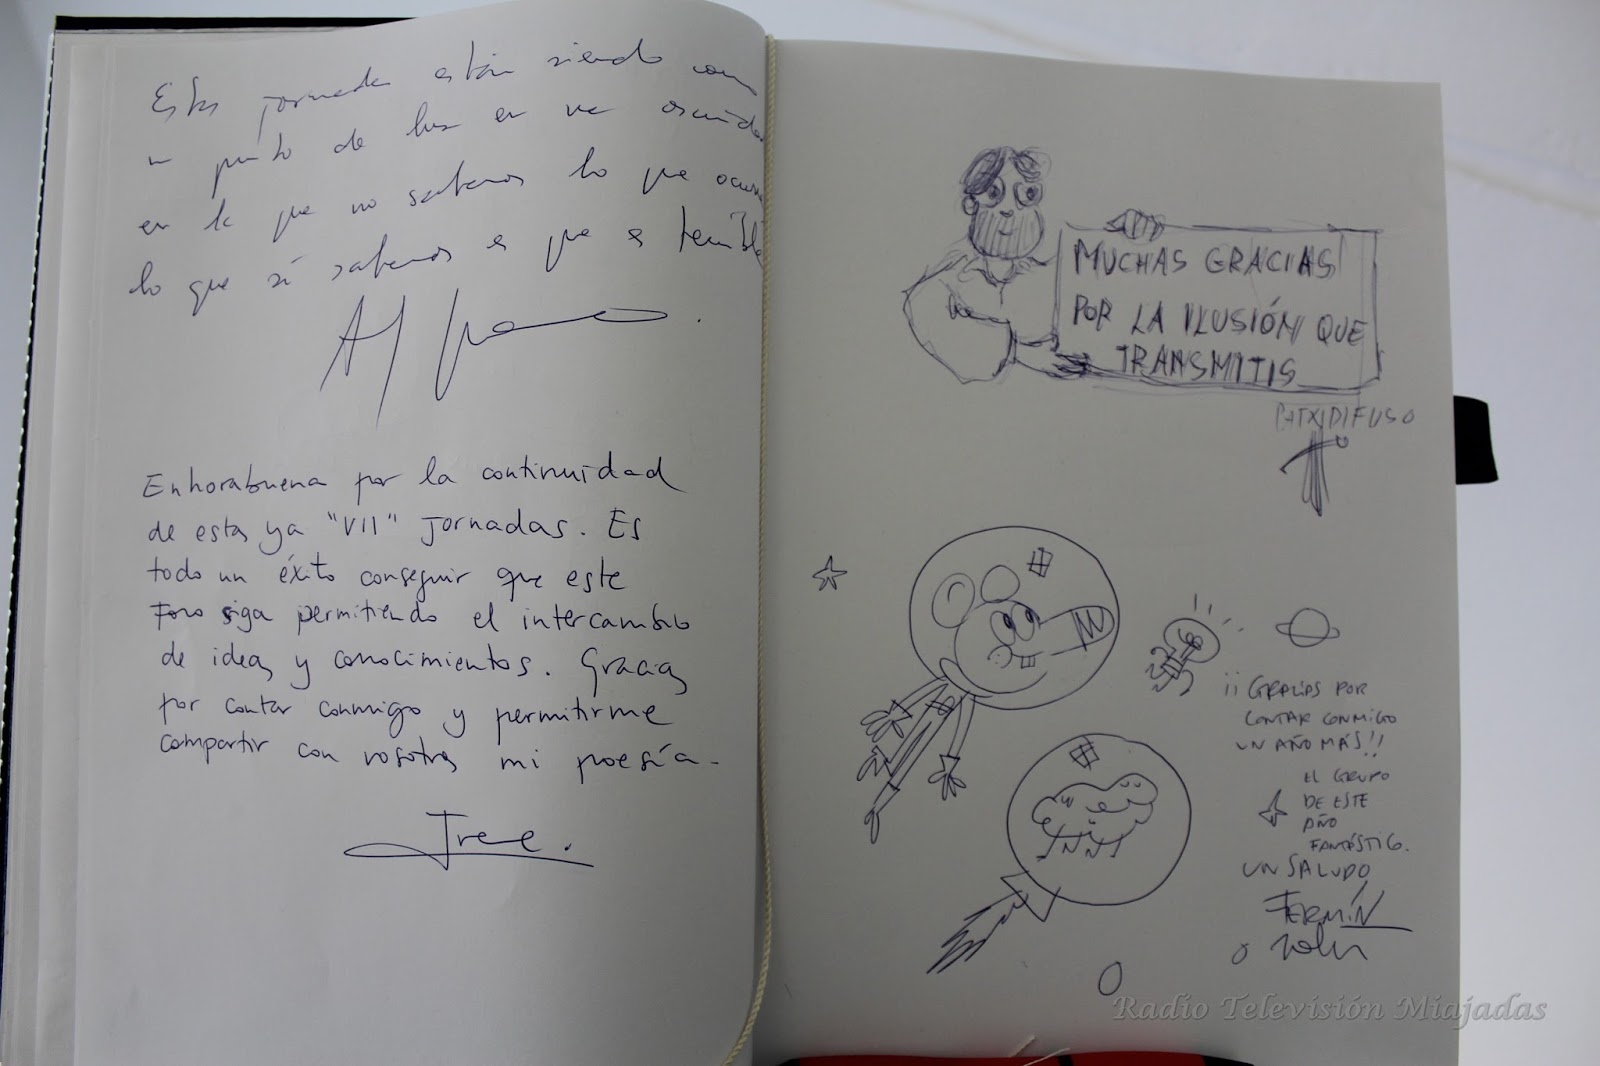 Estas jornadas están siendo como
un punto de luz en una oscuridad
en la que no sabemos lo que ocurre
lo que sí sabemos es que es terrible
Enhorabuena por la continuidad
de estas ya "VII" Jornadas. Es
todo un éxito conseguir que este
Foro siga permitiendo el intercambio
de ideas y conocimientos. Gracias
por contar conmigo y permitirme
compartir con vosotros mi poesía.
Iree.
MUCHAS GRACIAS
POR LA ILUSIÓN QUE
TRANSMITIS
PATXIDIFUSO
¡¡GRACIAS POR
CONTAR CONMIGO
UN AÑO MÁS!!
EL GRUPO
DE ESTE
AÑO
FANTÁSTICO.
UN SALUDO
FERMÍN
Radio Televisión Miajadas